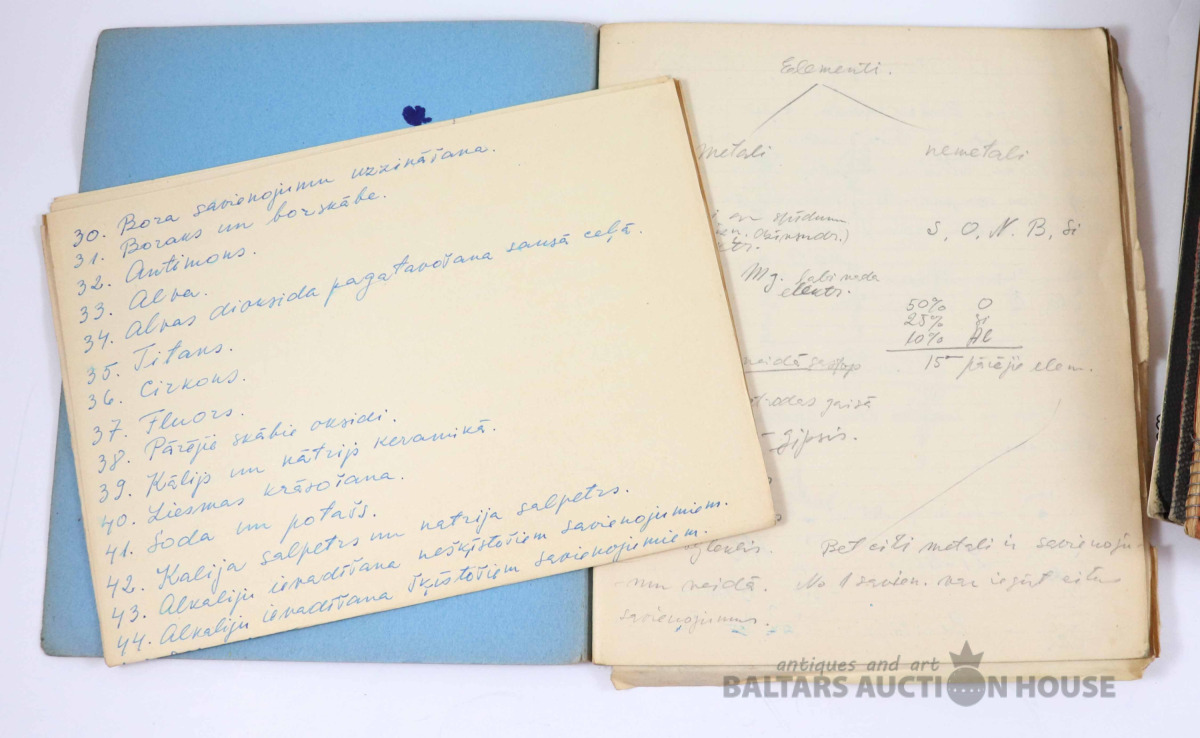 30. Bora savienojumu uzzināšana.
31. Boraks un borskābe.
32. Antimons.
33. Alva.
34. Alvas dioksida pagatavošana sausā ceļā.
35. Titans.
36. Cirkons.
37. Fluors.
38. Pārējie skābie oksidi.
39. Kālijs un nātrijs keramikā.
40. Liesmas krāsošana.
41. Soda un potašs.
42. Kalija salpetrs un natrija salpetrs.
43. Alkaliju ievadīšana nešķīstošiem savienojumiem.
44. Alkaliju ievadīšana šķīstošiem savienojumiem.
Elementi.
metali nemetali
ar spīdumu
S, O, N. B, Si
Mg. labi vada
elektr.
50% O
25% Si
10% Al
15 pārējie elem.
veidā sastop
gaisā
ģipsis.
Bet citi metali ir savienoju-
mu veidā. No 1 savien. var iegūt citus
savienojumus.
antiques and art
BALTARS AUCTION HOUSE